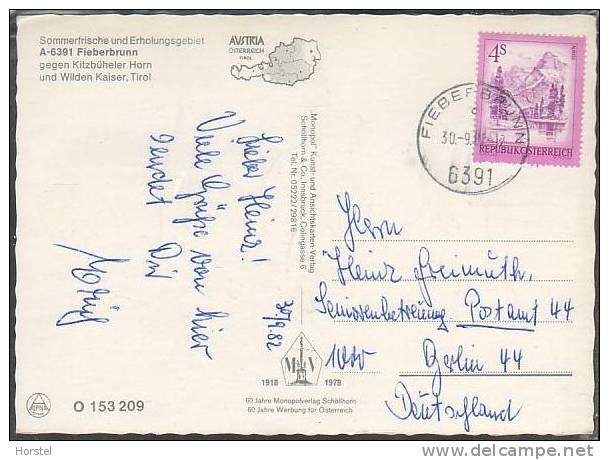 Sommerfrische und Erholungsgebiet
A-6391 Fieberbrunn
gegen Kitzbüheler Horn
und Wilden Kaiser, Tirol
AUSTRIA
ÖSTERREICH
TIROL
4S
REPUBLIK ÖSTERREICH
FIEBERBRUNN
30.-9.
6391
"Monopol" Kunst- und Ansichtskarten-Verlag
Schöllhorn & Co., Innsbruck, Colingasse 6
Tel. Nr. 05222/29816
30/9.82
Lieber Heinz!
Viele Grüße von hier
sendet Dir
Herrn
Heinz Freimuth,
Seniorenbetreuung Postamt 44
1000 Berlin 44
Deutschland
MV
1918 1978
60 Jahre Monopolverlag Schöllhorn
60 Jahre Werbung für Österreich
ALPINA
O 153 209
Horstel
www.delcampe.net